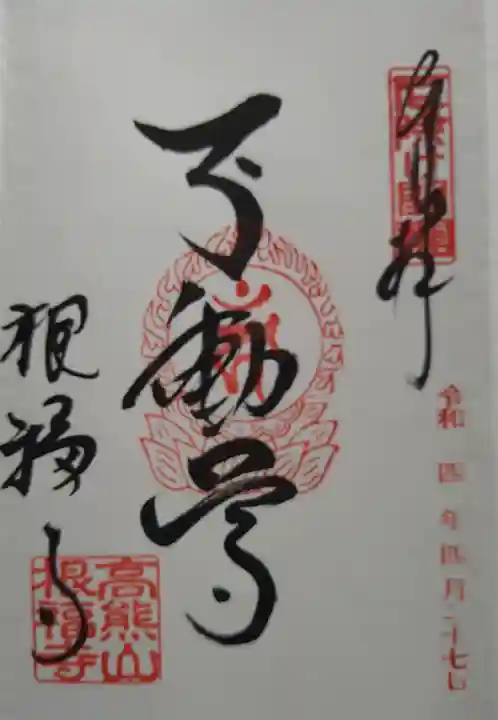 奉拝
令和四年四月二十七日
不動尊
根福寺
高熊山
根福寺